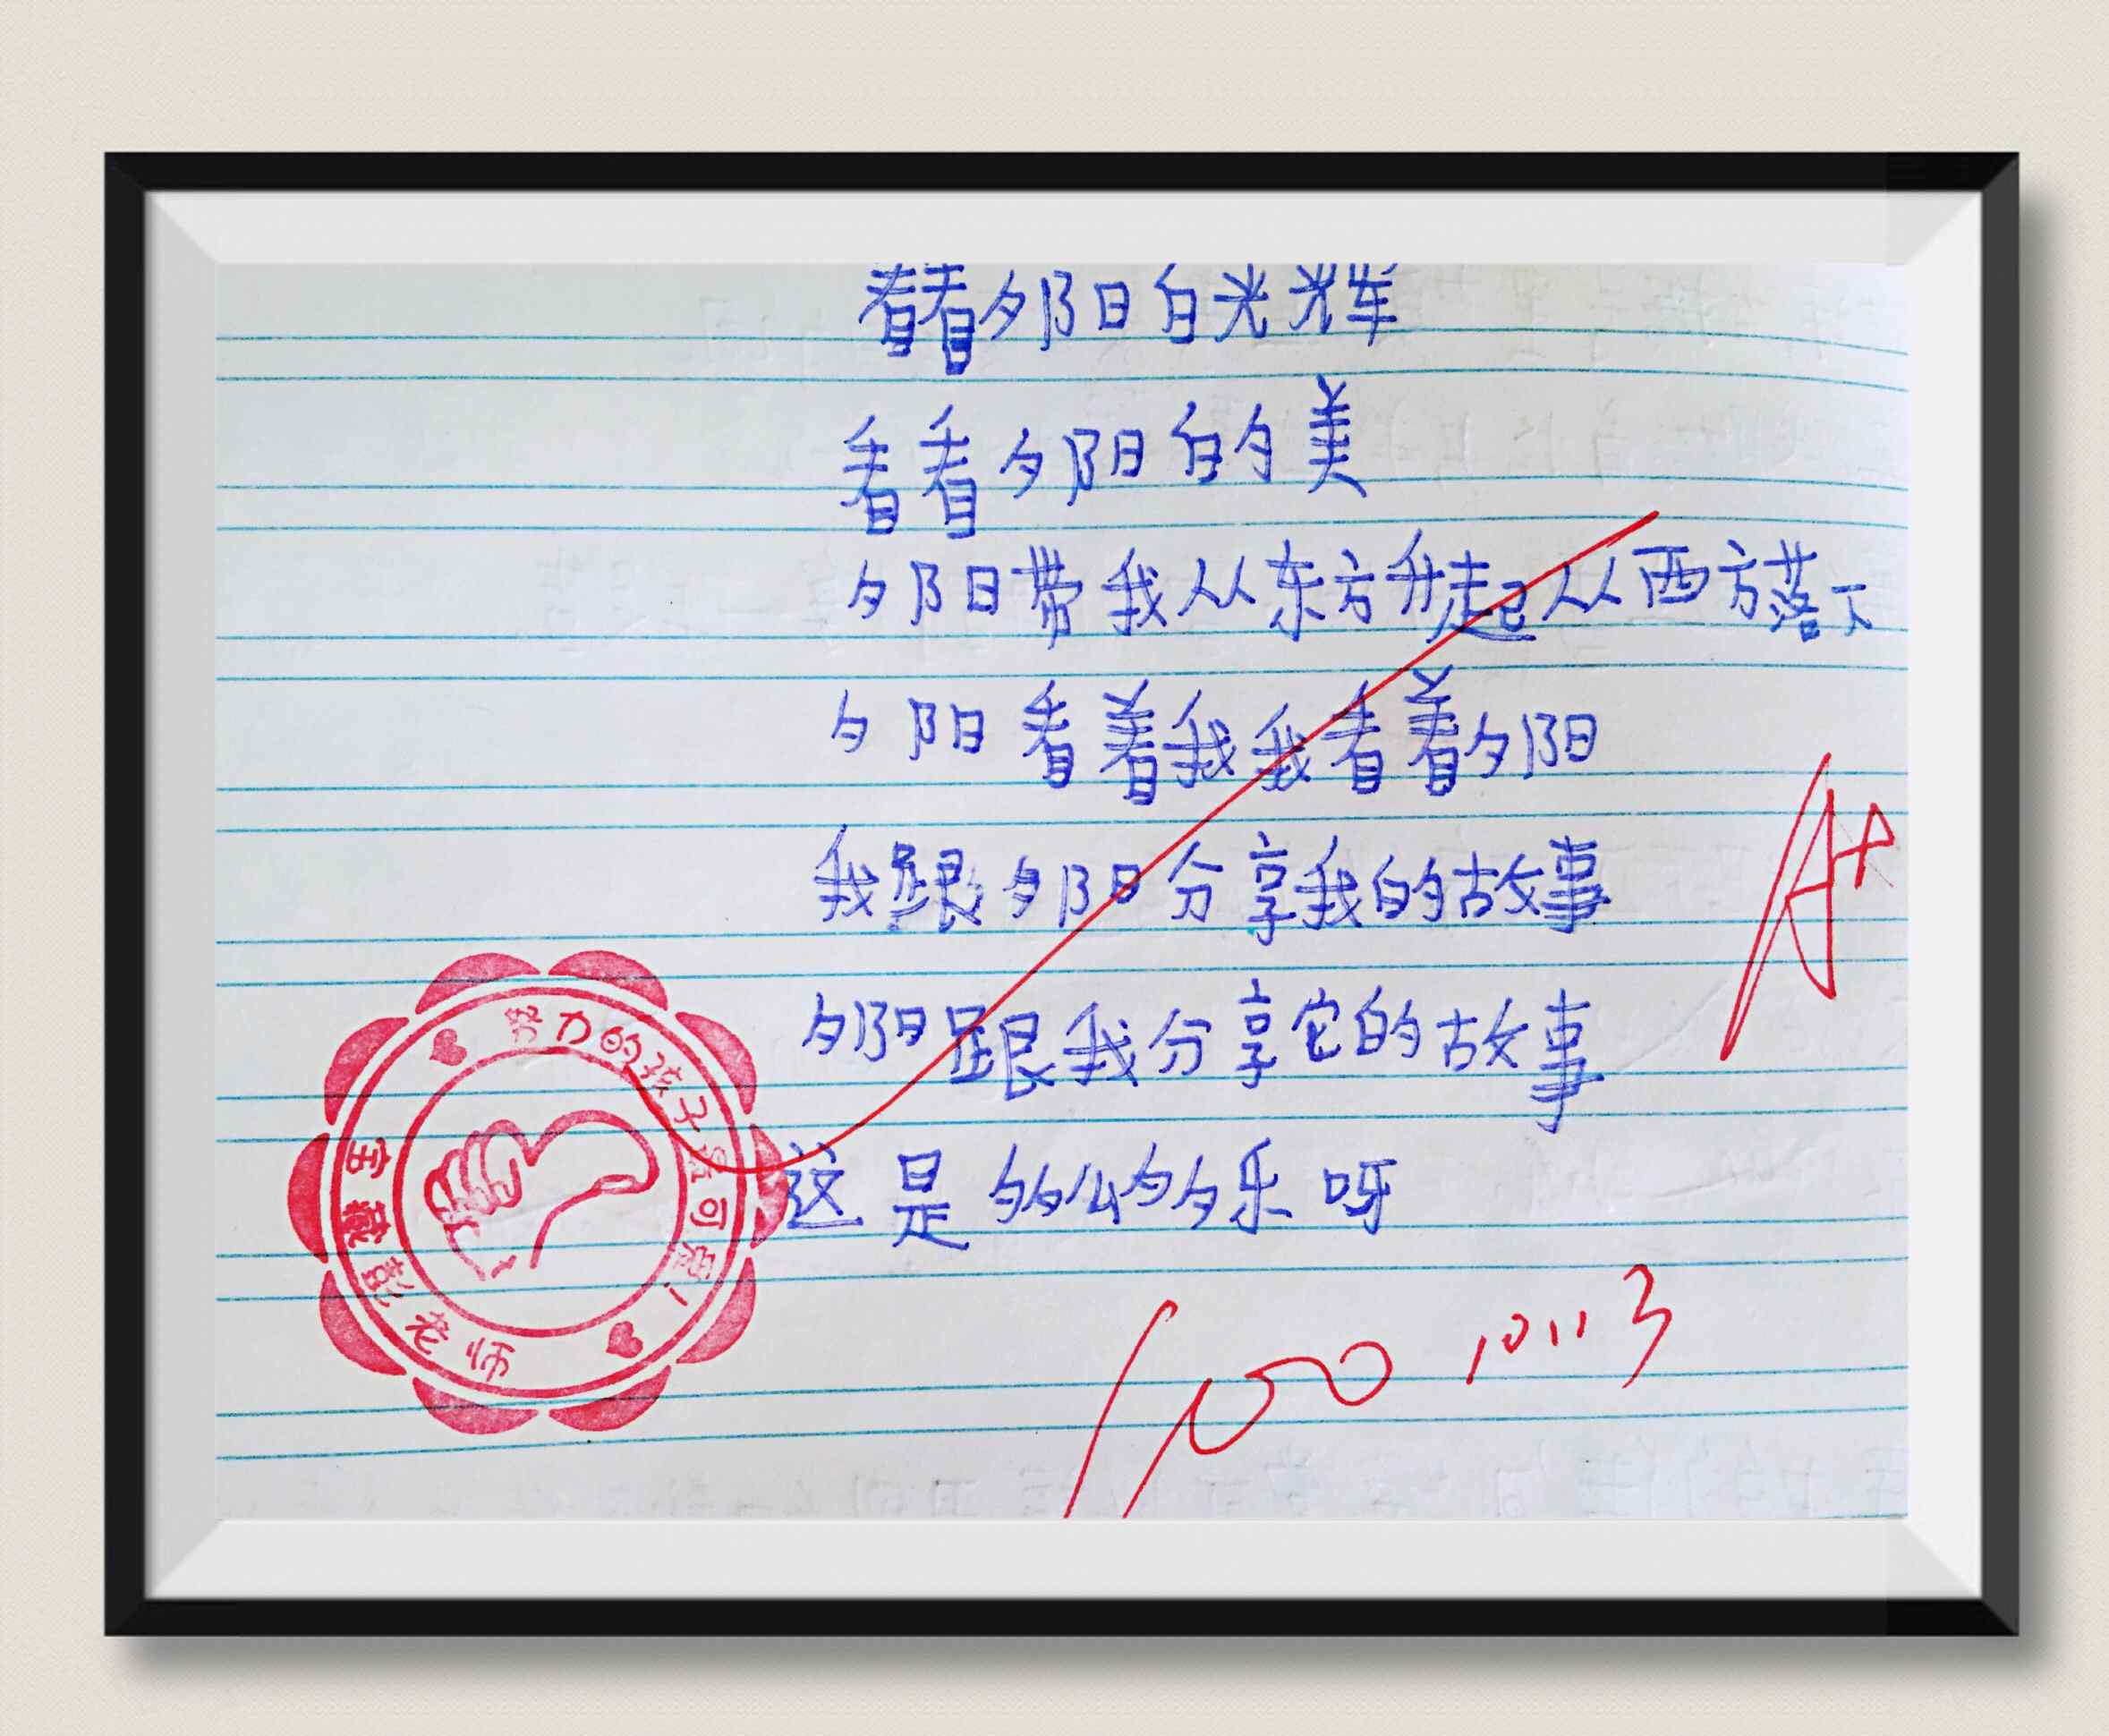 看看夕阳白光辉
看看夕阳的美
夕阳带我从东方升起从西方落下
夕阳看着我我看着夕阳
我跟夕阳分享我的故事
夕阳跟我分享它的故事
这是多么乐呀
A+
100
努力的孩子可爱!
宝藏彭老师